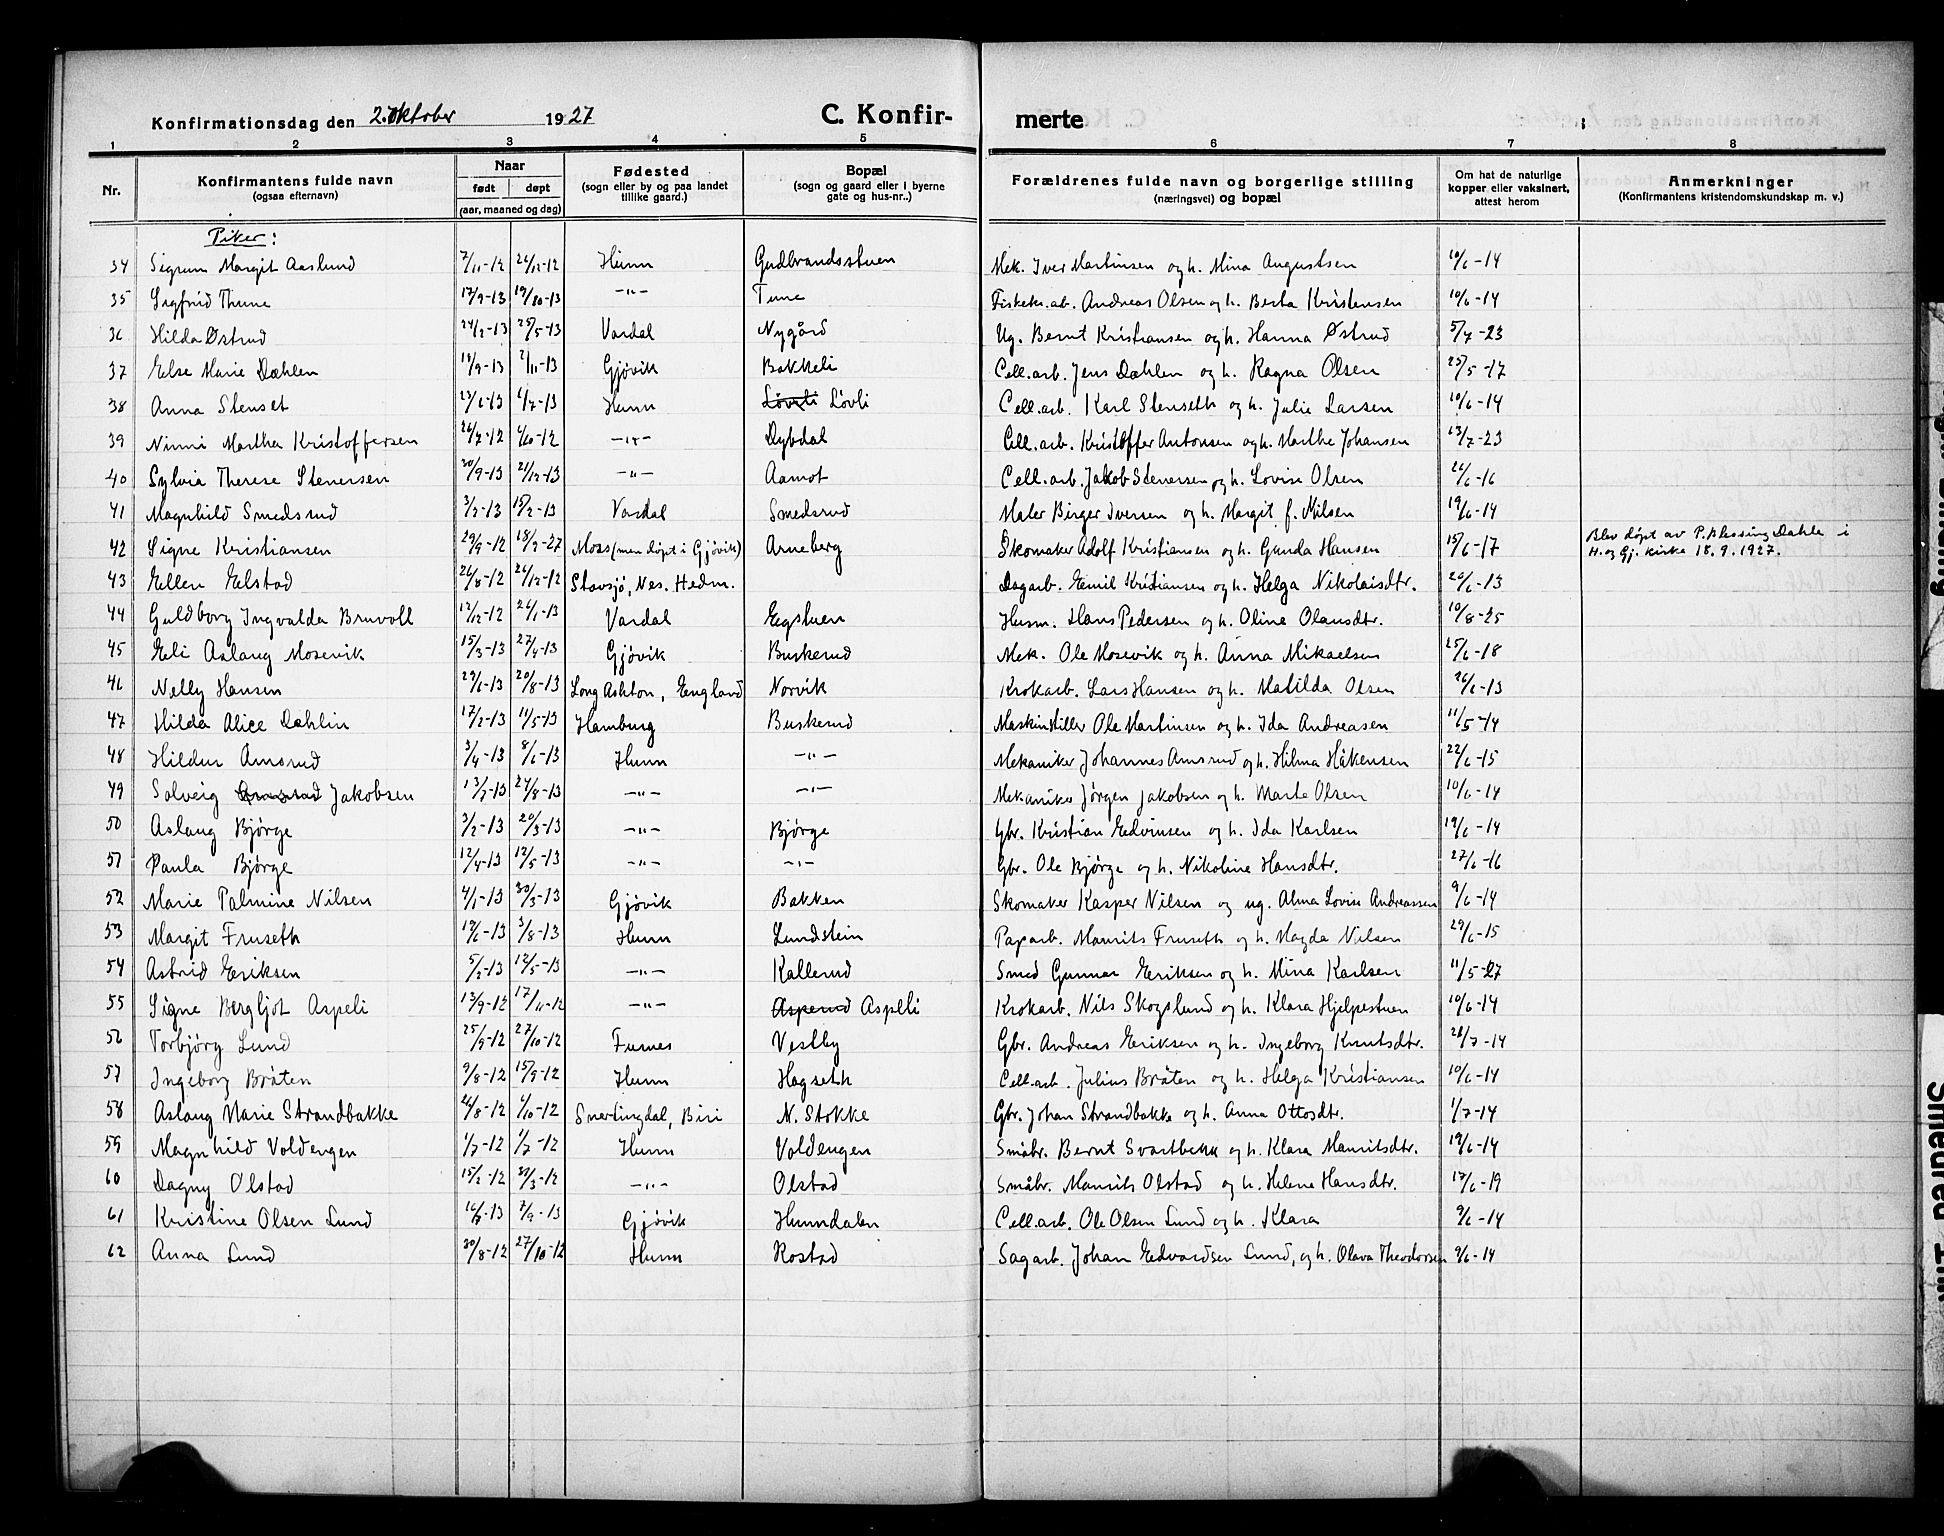 Konfirmationsdag den 2. Oktober 1927 C. Konfir- merte
1 2 3 4 5 6 7 8
Nr. Konfirmantens fulde navn (ogsaa efternavn) Naar født døpt (aar, maaned og dag) Fødested (sogn eller by og paa landet tillike gaard.) Bopæl (sogn og gaard eller i byerne gate og hus-nr..) Forældrenes fulde navn og borgerlige stilling (næringsvei) og bopæl Om hat de naturlige kopper eller vaksinert, attest herom Anmerkninger (Konfirmantens kristendomskundskap m. v.)
Piker:
34 Sigrun Margit Aaslund 7/11-12 26/12-12 Hunn Gudbrandsstuen Mek. Iver Martinsen og h. Mina Augustsen 10/6-14
35 Sigfrid Thune 17/9-13 19/10-13 -"- Tune Fiskeh.ab. Andreas Olsen og h. Berta Kristensen 10/6-14
36 Hilda Østrud 24/2-13 25/5-13 Vardal Nygård Ug. Bernt Kristiansen og h. Hanna Østrud 5/7-23
37 Else Marie Dæhlen 18/9-13 2/11-13 Gjøvik Bakkeli Cell.arb. Jens Dæhlen og h. Ragna Olsen 25/5-17
38 Anna Stenset 23/6-13 6/7-13 Hunn Løvli Løvli Cell.arb. Karl Stenseth og h. Julie Larsen 10/6-14
39 Ninni Martha Kristoffersen 26/7-12 6/10-12 -"- Dybdal Cell.arb. Kristoffer Antonsen og h. Marthe Johansen 13/7-23
40 Sylvia Therese Stenersen 30/9-13 21/12-13 -"- Aamot Cell.arb. Jakob Stenersen og h. Lovise Olsen 26/6-16
41 Magnhild Smedsrud 3/2-13 15/2-13 Vardal Smedsrud Maler Birger Iversen og h. Margit f. Nilsen 19/6-14
42 Signe Kristiansen 29/9-12 18/9-27 Moss (men døpt i Gjøvik) Arneberg Skomaker Adolf Kristiansen og h. Gunda Hansen 15/6-17 Blev døpt av P. Blessing Dahle i
H. og Gj. kirke 18.9.1927.
43 Ellen Elstad 26/8-12 26/12-12 Stavsjø, Nes. Hedm. Dagarb. Emil Kristiansen og h. Helga Nikolaisdtr. 20/6-13
44 Guldborg Ingvalda Bruvoll 12/12-12 26/1-13 Vardal Egstuen Husm. Hans Pedersen og h. Oline Olausdtr. 10/8-25
45 Eli Aslaug Mosevik 15/3-13 27/4-13 Gjøvik Buskerud Mek. Ole Mosevik og h. Anna Mikaelsen 25/6-18
46 Nelly Hansen 29/6-13 20/8-13 Long Ashton, England Norvik Krokarb. Lars Hansen og h. Matilda Olsen 26/6-13
47 Hilda Alice Dæhlin 17/2-13 11/5-13 Hamburg Buskerud Maskinstiller Ole Martinsen og h. Ida Andreasen 11/5-14
48 Hildur Amsrud 3/4-13 8/6-13 Hunn -"- Mekaniker Johannes Amsrud og h. Hilma Håkensen 22/6-15
49 Solveig Amsrud Jakobsen 13/7-13 24/8-13 -"- -"- Mekaniker Jørgen Jakobsen og h. Marte Olsen 10/6-14
50 Aslaug Bjørge 3/2-13 20/3-13 -"- Bjørge Gbr. Kristian Edvinsen og h. Ida Karlsen 19/6-14
51 Paula Bjørge 12/4-13 12/5-13 -"- -"- Gbr. Ole Bjørge og h. Nikoline Hansdtr. 27/6-16
52 Marie Palmine Nilsen 4/1-13 30/3-13 Gjøvik Bakken Skomaker Kasper Nilsen og ug. Alma Lovise Andreassen 9/6-14
53 Margit Fruseth 19/6-13 3/8-13 Hunn Lundstein Paparb. Maurits Fruseth og h. Magda Nilsen 29/6-15
54 Astrid Eriksen 5/2-13 12/5-13 -"- Kallerud Smed Gunnar Eriksen og h. Mina Karlsen 11/5-27
55 Signe Bergljot Aspeli 13/9-12 17/11-12 -"- Asperud Aspeli Krokarb. Nils Skogslund og h. Klara Hjelpestuen 10/6-14
56 Torbjørg Lund 25/9-12 27/10-12 Furnes Vestby Gbr. Andreas Eriksen og h. Ingeborg Knutsdtr. 28/7-14
57 Ingeborg Bråten 9/8-12 15/9-12 Hunn Hagseth Cell.arb. Julius Bråten og h. Helga Kristiansen 10/6-14
58 Aslaug Marie Strandbakke 26/8-12 6/10-12 Snertingdal, Biri N. Stokke Gbr. Johan Strandbakke og h. Anna Ottosdtr. 1/7-14
59 Magnhild Voldengen 1/7-12 1/7-12 Hunn Voldengen Småbr. Bernt Svartbekk og h. Klara Mauritsdtr. 19/6-14
60 Dagny Olstad 15/2-12 31/3-12 -"- Olstad Småbr. Maurits Olstad og h. Helene Hansdtr. 17/6-19
61 Kristine Olsen Lund 16/7-13 7/9-13 Gjøvik Hunndalen Cell.arb. Ole Olsen Lund og h. Klara 9/6-14
62 Anna Lund 30/8-12 27/10-12 Hunn Rostad Sagarb. Johan Edvardsen Lund, og h. Olava Theodorsen 9/6-14